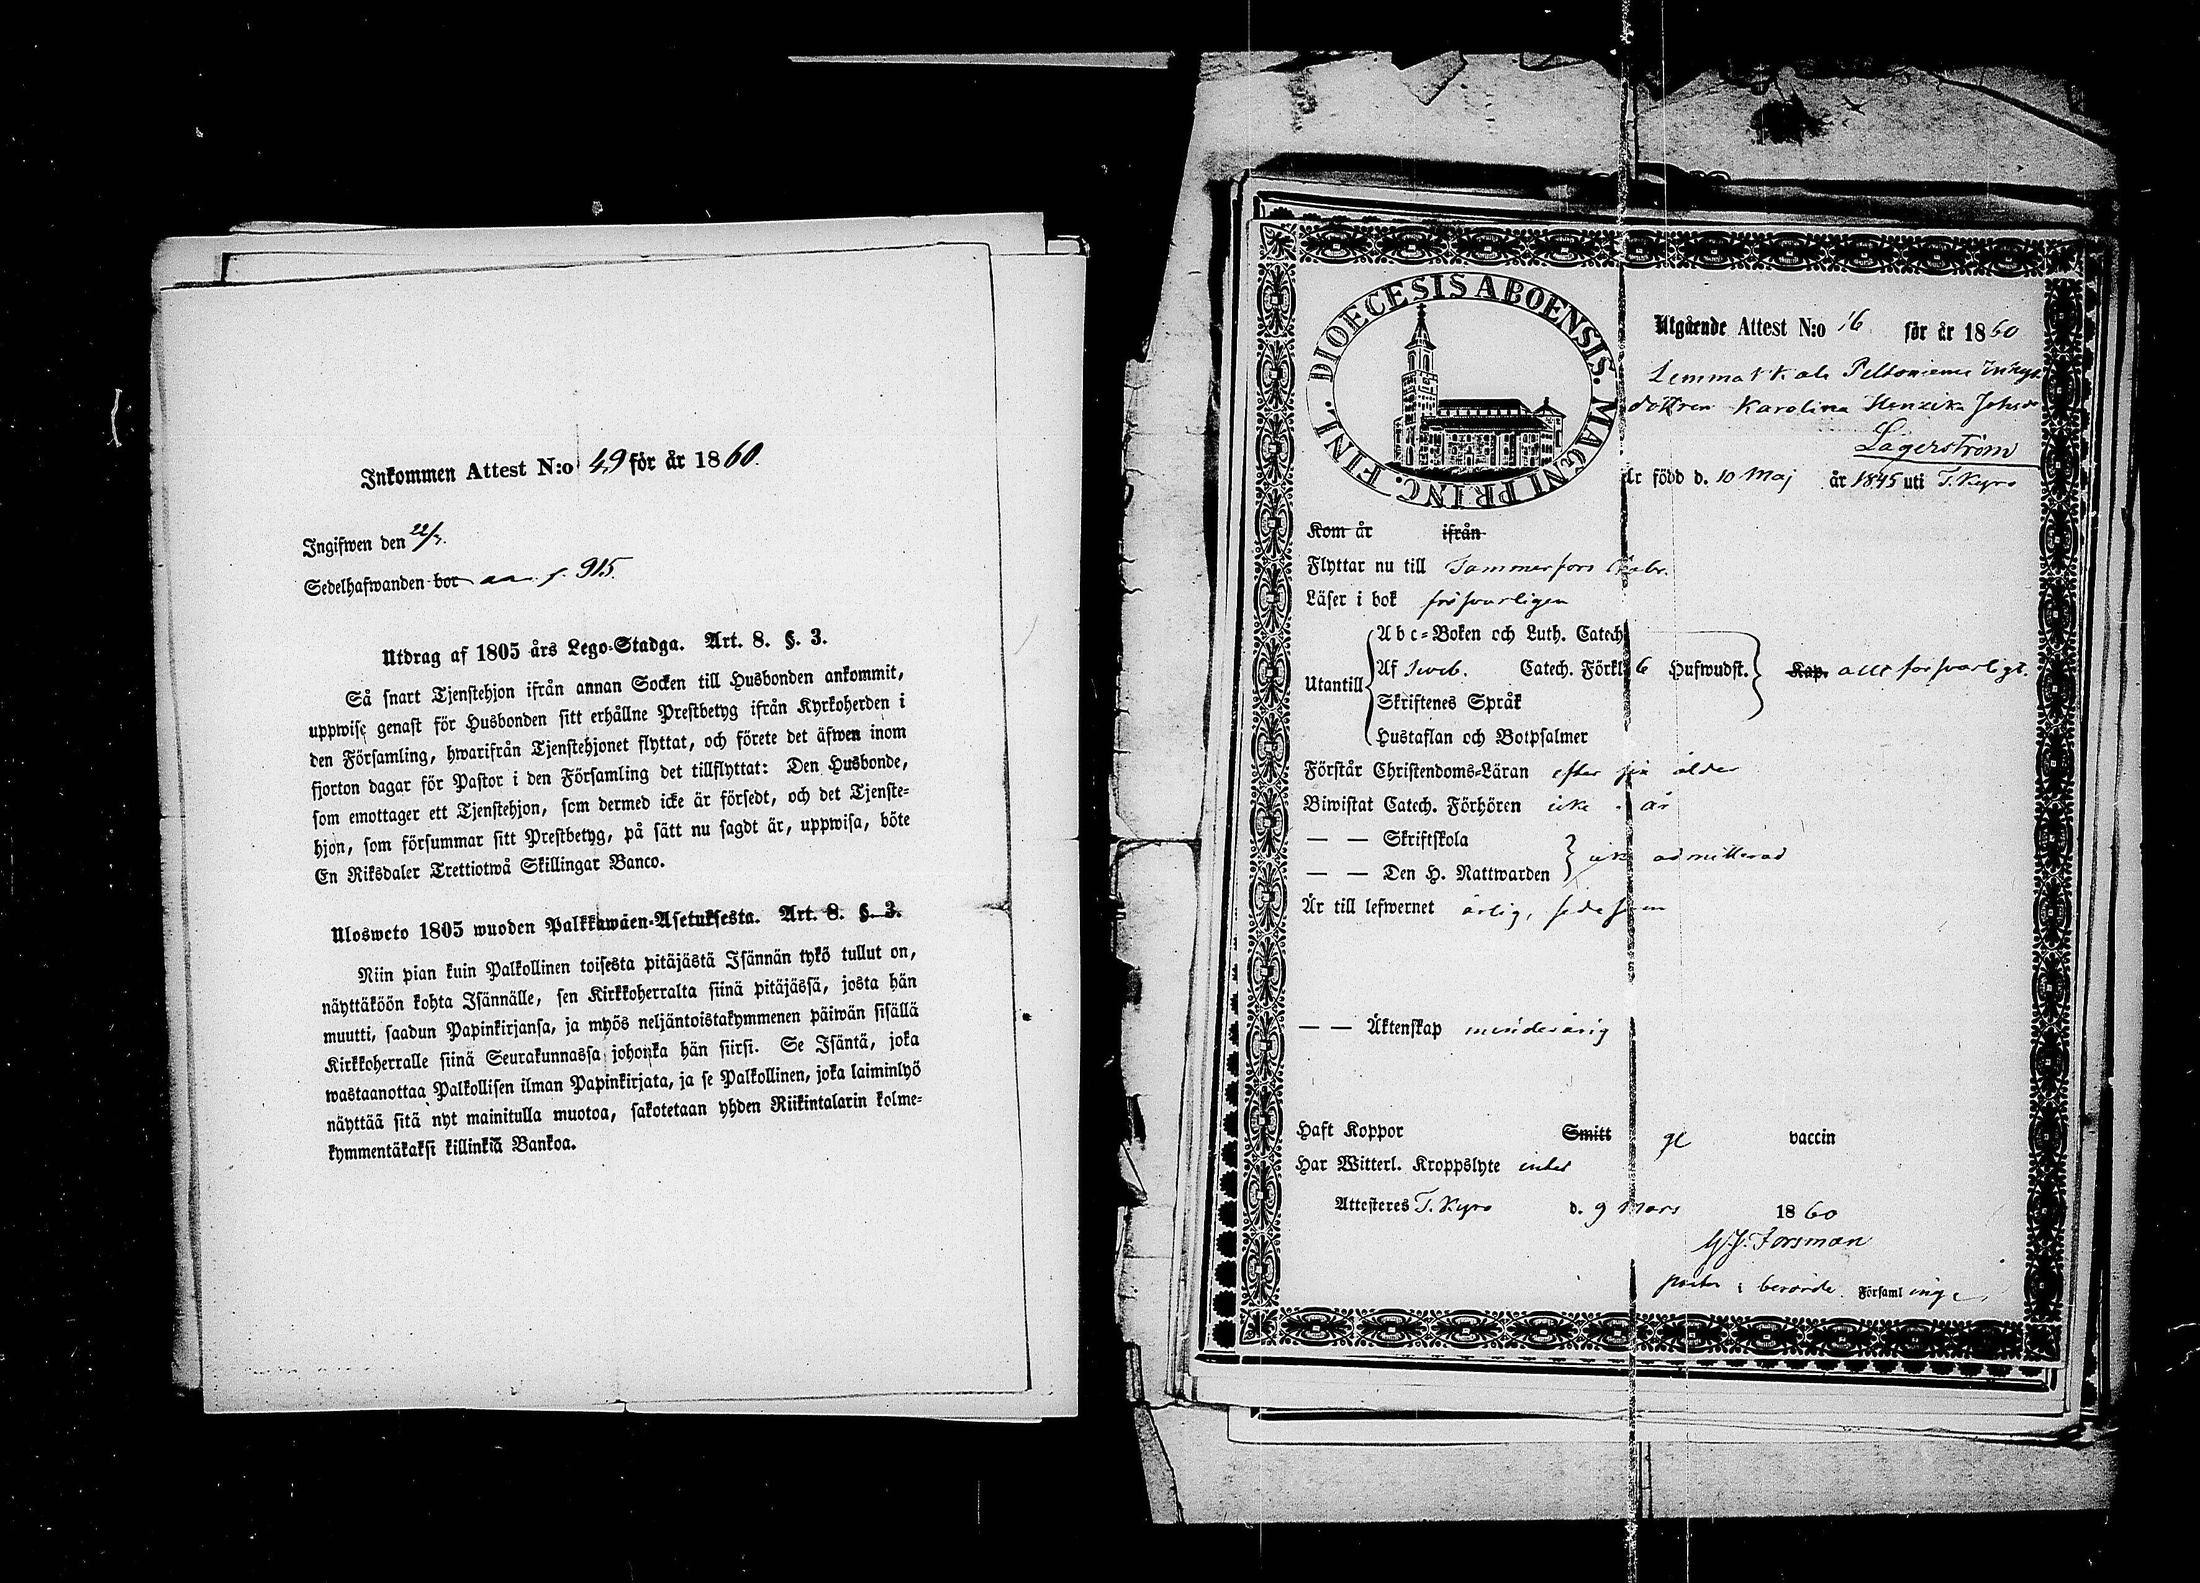 Inkommen Attest N:o 49 för år 1860.
Ingifwen den 22/3.
Sedelhafwanden bor 915.
Utdrag af 1805 års Lego-Stadga. Art. 8. §. 3.
Så snart Tjenstehjon ifrån annan Socken till Husbonden ankommit,
uppwise genast för Husbonden sitt erhållne Prestbetyg ifrån Kyrkoherden i
den Församling, hwarifrån Tjenstehjonet flyttat, och förete det äfwen inom
fjorton dagar för Pastor i den Församling det tillflyttat: Den Husbonde,
som emottager ett Tjenstehjon, som dermed icke är försedt, och det Tjenste-
hjon, som försummar sitt Prestbetyg, på sätt nu sagdt är, uppwisa, böte
En Riksdaler Trettiotwå Skillingar Banco.
Ulosweto 1805 wuoden Palkkawäen-Asetuksesta. Art. 8. §. 3.
Niin pian kuin Palkollinen toisesta pitäjästä Isännän tykö tullut on,
näyttäköön kohta Isännälle, sen Kirkkoherralta siinä pitäjässä, josta hän
muutti, saadun Papinkirjansa, ja myös neljäntoistakymmenen päiwän sisällä
Kirkkoherralle siinä Seurakunnassa johonka hän siirsi. Se Isäntä, joka
wastaanottaa Palkollisen ilman Papinkirjata, ja se Palkollinen, joka laiminlyö
näyttää sitä nyt mainitulla muotoa, sakotetaan yhden Riikintalarin kolme-
kymmentäkaksi killinkiä Bankoa.
DIOECESIS ABOENSIS. MAGNI PRINC. FINL.
Utgående Attest N:o 16 för år 1860
Lemmakkala Peltoniemi Inhys
dottren Karolina Henrika Johsdr
Lagerström
Är född d. 10 Maj år 1845 uti T.Kyro
Kom år ifrån
Flyttar nu till Tammerfors
Läser i bok försvarligen
Utantill
Abc-Boken och Luth. Catech.
Af Sveb. Catech. Förkl. 6 Hufwudst. Kap. allt försvarligt.
Skriftenes Språk
Hustaflan och Botpsalmer
Förstår Christendoms-Läran efter sin ålder
Biwistat Catech. Förhören i år
— — Skriftskola
— — Den H. Nattwarden admitterad
Är till lefwernet ärlig, sedesam
— — Äktenskap minderårig
Haft Koppor Smitt vaccin
Har Witterl. Kroppslyte intet
Attesteres T. Kyro d. 9 Mars 1860
G.J. Forsman
Församl